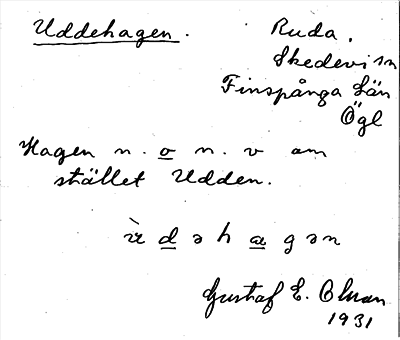 Uddehagen.
Ruda.
Skedevi sn
Finspånga län
Ögl
Hagen n. o n. v om
stället Udden.
ù d ə h a g ə n
Gustaf E. Olsson
1931